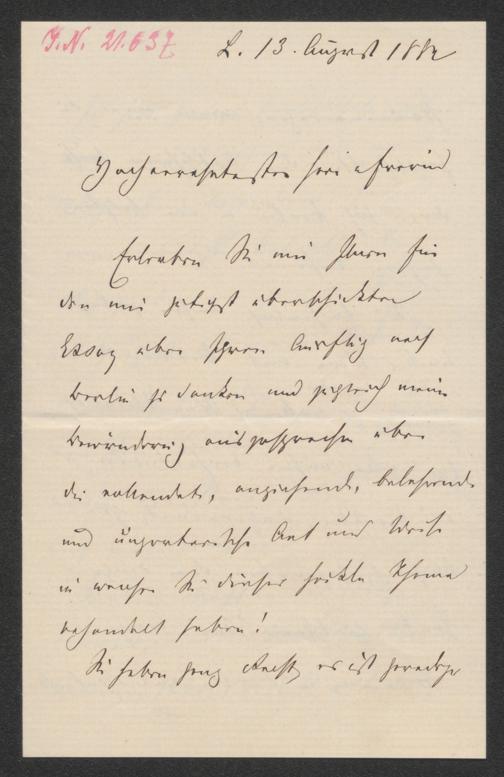 I.N. 21.637
L. 13. August 1882
Hochverehrtester Herr u Freund
Erlauben Sie mir Ihnen für
den mir gütigst überschickten
Essay über Ihren Ausflug nach
Berlin zu danken und zugleich meine
Bewunderung auszusprechen über
die vollendete, anziehende, belehrende
und unparteiische Art und Weise
in welcher Sie dieses heikle Thema
behandelt haben!
Sie haben ganz Recht, es ist geradezu